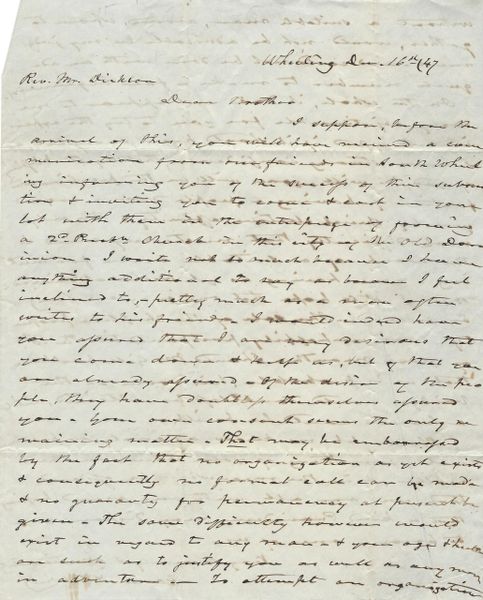 Wheeling Dec. 16th /47
Rev. Mr. Dickson
Dear Brother
I suppose, before the
arrival of this, you will have received a com
munication from our friends in South Wheel
ing informing you of the success of their subscrip
tion & inviting you to come & cast in your
lot with them in the enterprize of forming
a 2d. Presbn. Church in this city of the Old Dom
inion. I write not so much because I have
anything additional to say as because I feel
inclined to, - pretty much as a man often
writes to his friends. I would indeed have
you assured that I am very desirous that
you come down & help us, but of that you
are already assured. Of the desire of the peo
ple, they have doubtless themselves assured
you. Your own consent seems the only re
maining matter. That may be embarrassed
by the fact that no organization as yet exists
& consequently no formal call can be made
& no guaranty for permanency at present be
given. The same difficulty however would
exist in regard to any man & your age &
are such as to justify you as well as any man
in adventure. To attempt an organization